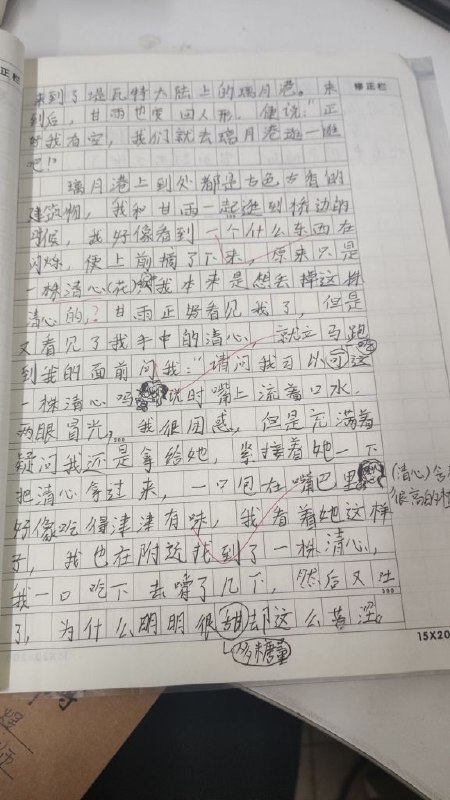 修正栏
来到了提瓦特大陆上的璃月港。来
到后，甘雨也变回人形，便说："正
好我有空，我们就去璃月港逛一逛
吧！"
璃月港上到处都是古色古香的
建筑物，我和甘雨一起逛到桥边的
时候，我好像看到一个什么东西在
闪烁，便上前摘了下来，原来只是
一株清心(花)我本来是想丢掉这株
清心的，？甘雨正好看见我了，但是
又看见了我手中的清心，就立马跑
到我的面前问我："请问我可以可这
吃
一株清心吗 说时嘴上流着口水，
两眼冒光，我很困惑，但是充满着
疑问我还是拿给她，紧接着她一下
把清心拿过来，一口包在嘴巴里
(清心)含
很高的
好像吃得津津有味，我看着她这样
子，我也在附近找到了一株清心，
我一口吃下去嚼了几下，然后又吐
了，为什么明明很甜却这么苦涩。
多糖量
15X20